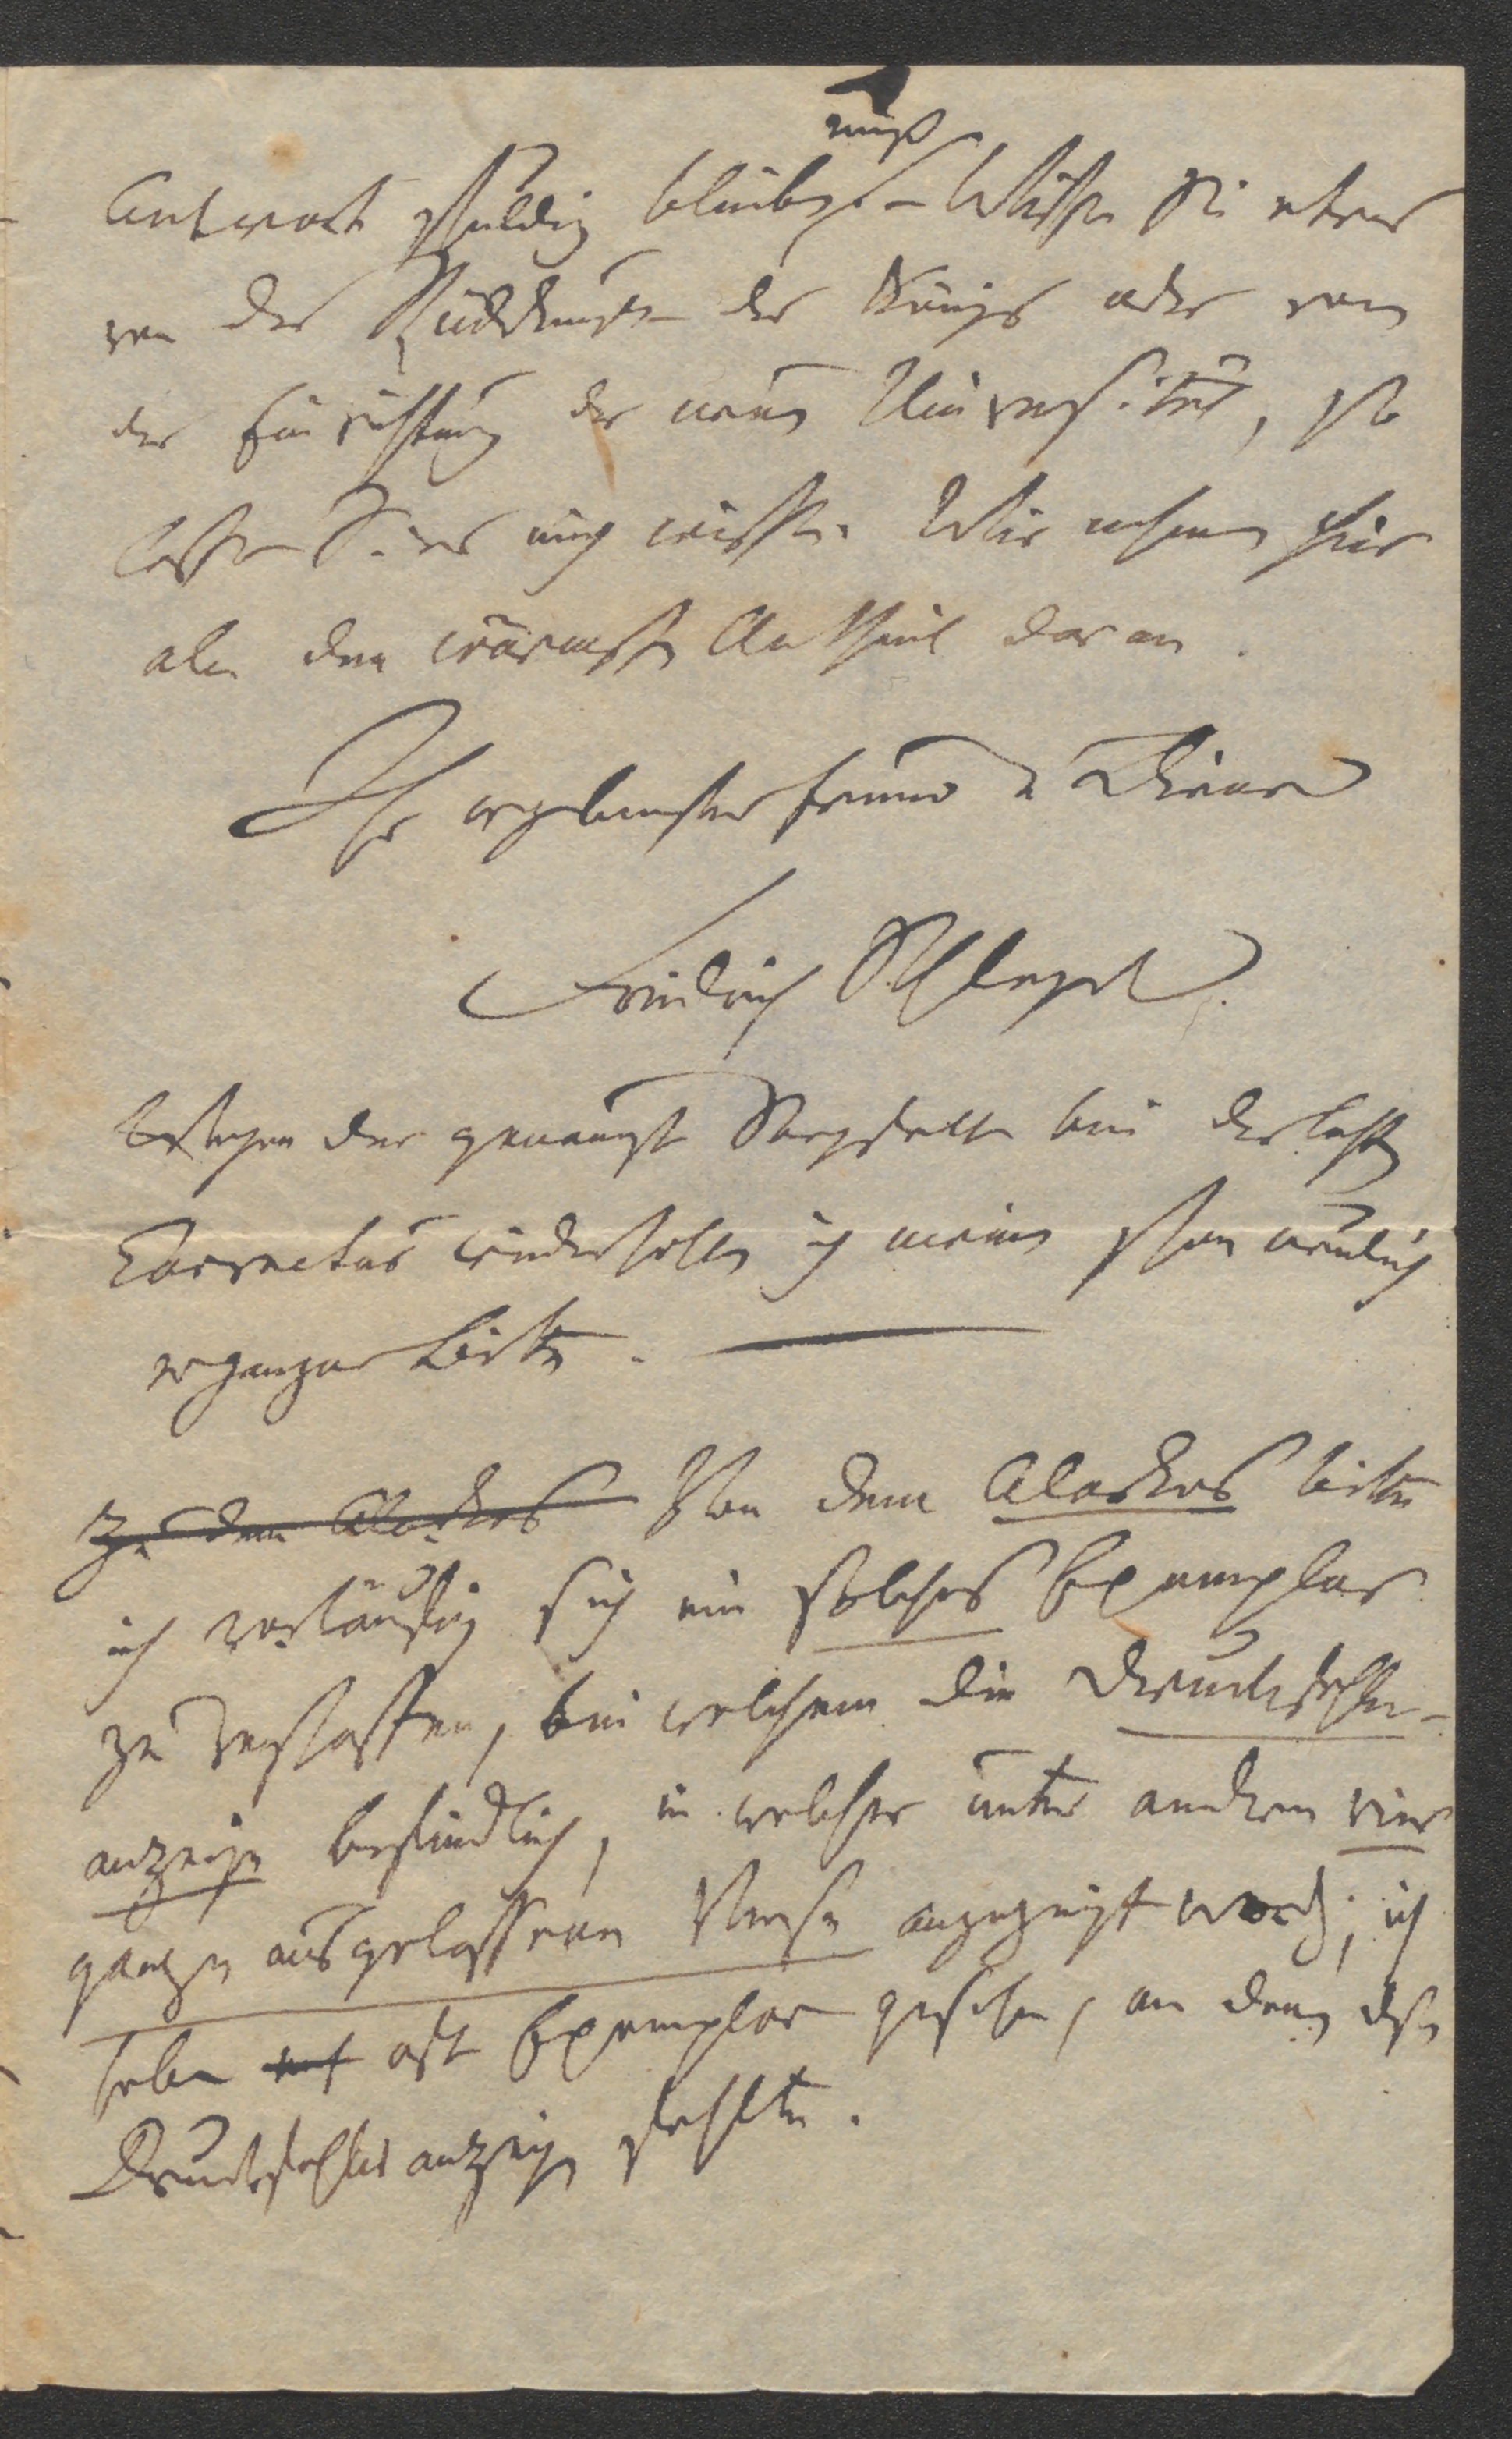 muß
Antwort schuldig bleiben. – Wissen Sie etwas
von der Rückkunft des Königs oder von
der Einrichtung der neuen Universität, so
lassen Sie es mich wissen. Wir nehmen hier
alle den wärmsten Antheil daran.
Ihr ergebenster Freund u Diener
Friedrich Schlegel.
Wegen der genauesten Sorgfalt bei der letzten
Correctur wiederhohle ich meine schon neulich
ergangne Bitte. —
Zu dem Alarkos Von dem Alarkos bitte
ich vorläufig sich ein solches Exemplar
zu verschaffen, bei welchem die Druckfehler-
anzeige befindlich, in welcher unter andern vier
ganze ausgelassene Verse angezeigt werden; ich
habe oft Exemplare gesehen, an denen diese
Druckfehleranzeige fehlte.